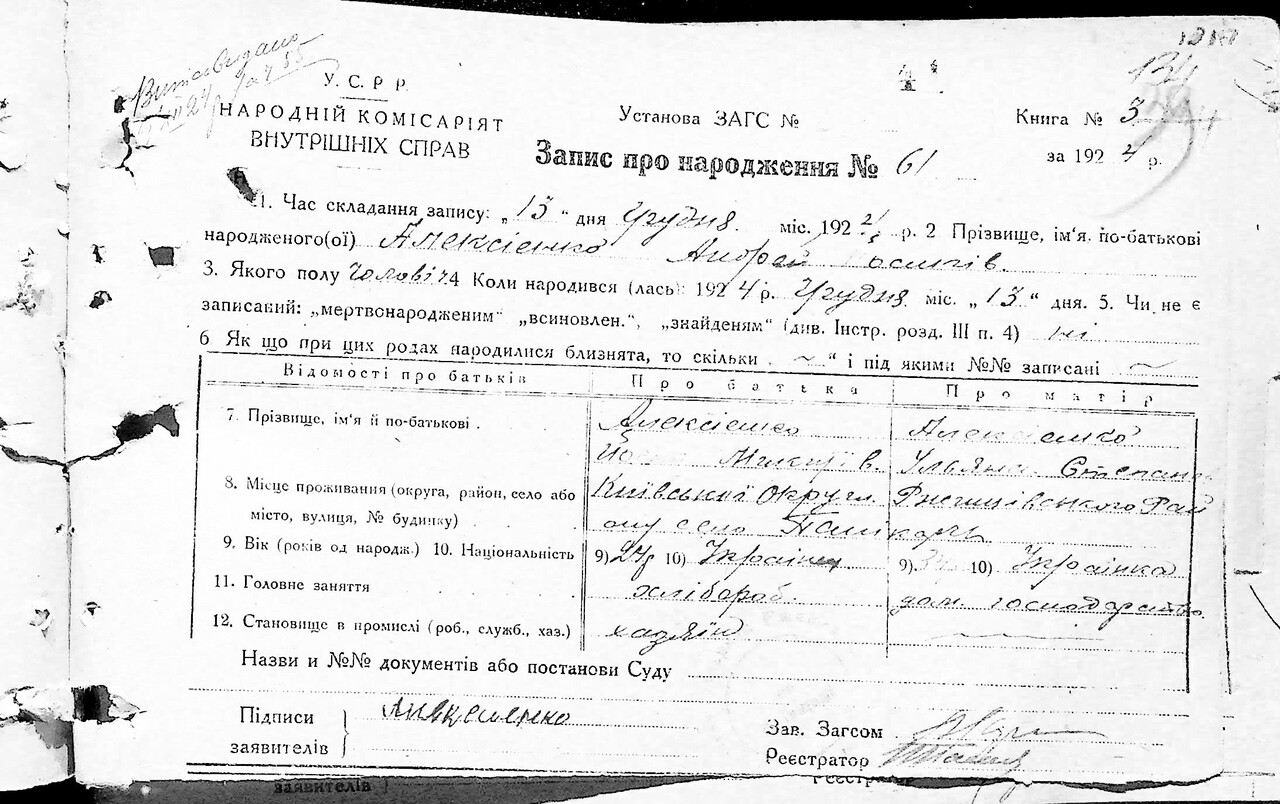 У. С. Р Р.
НАРОДНІЙ КОМІСАРІЯТ
ВНУТРІШНІХ СПРАВ
Установа ЗАГС №
Книга № 3
Запис про народження № 61
за 1924 р.
1. Час складання запису: „ 13 “ дня Грудня міс. 1924 р. 2 Прізвище, ім'я, по-батькові
народженого(ої) Алексієнко Андрей
3. Якого полу Чоловіч 4 Коли народився (лась): 1924 р. Грудня міс. „ 13 “ дня. 5. Чи не є
записаний: „мертвонародженим“ „всиновлен.“, „знайденям“ (див. Інстр. розд. III п. 4) ні
6 Як що при цих родах народилися близнята, то скільки . ~ “ і під якими №№ записані ~
Відомості про батьків Про батька Про матір
7. Прізвище, ім'я й по-батькові . Алексієнко Алексієнко
Ульяна Степан
8. Місце проживання (округа, район, село або Київської Округи Ржищівського Рай
місто, вулиця, № будинку) ону село
9. Вік (років од народж.) 10. Національність 9) 10) Українец 9). 10) Українка
11. Головне заняття хлібороб. дом. господарство
12. Становище в промислі (роб., служб., хаз.) хазяїн
Назви и №№ документів або постанови Суду
Підписи Алексієнко
заявителів
Зав. Загсом
Реєстратор
Реєстратор
заявителів